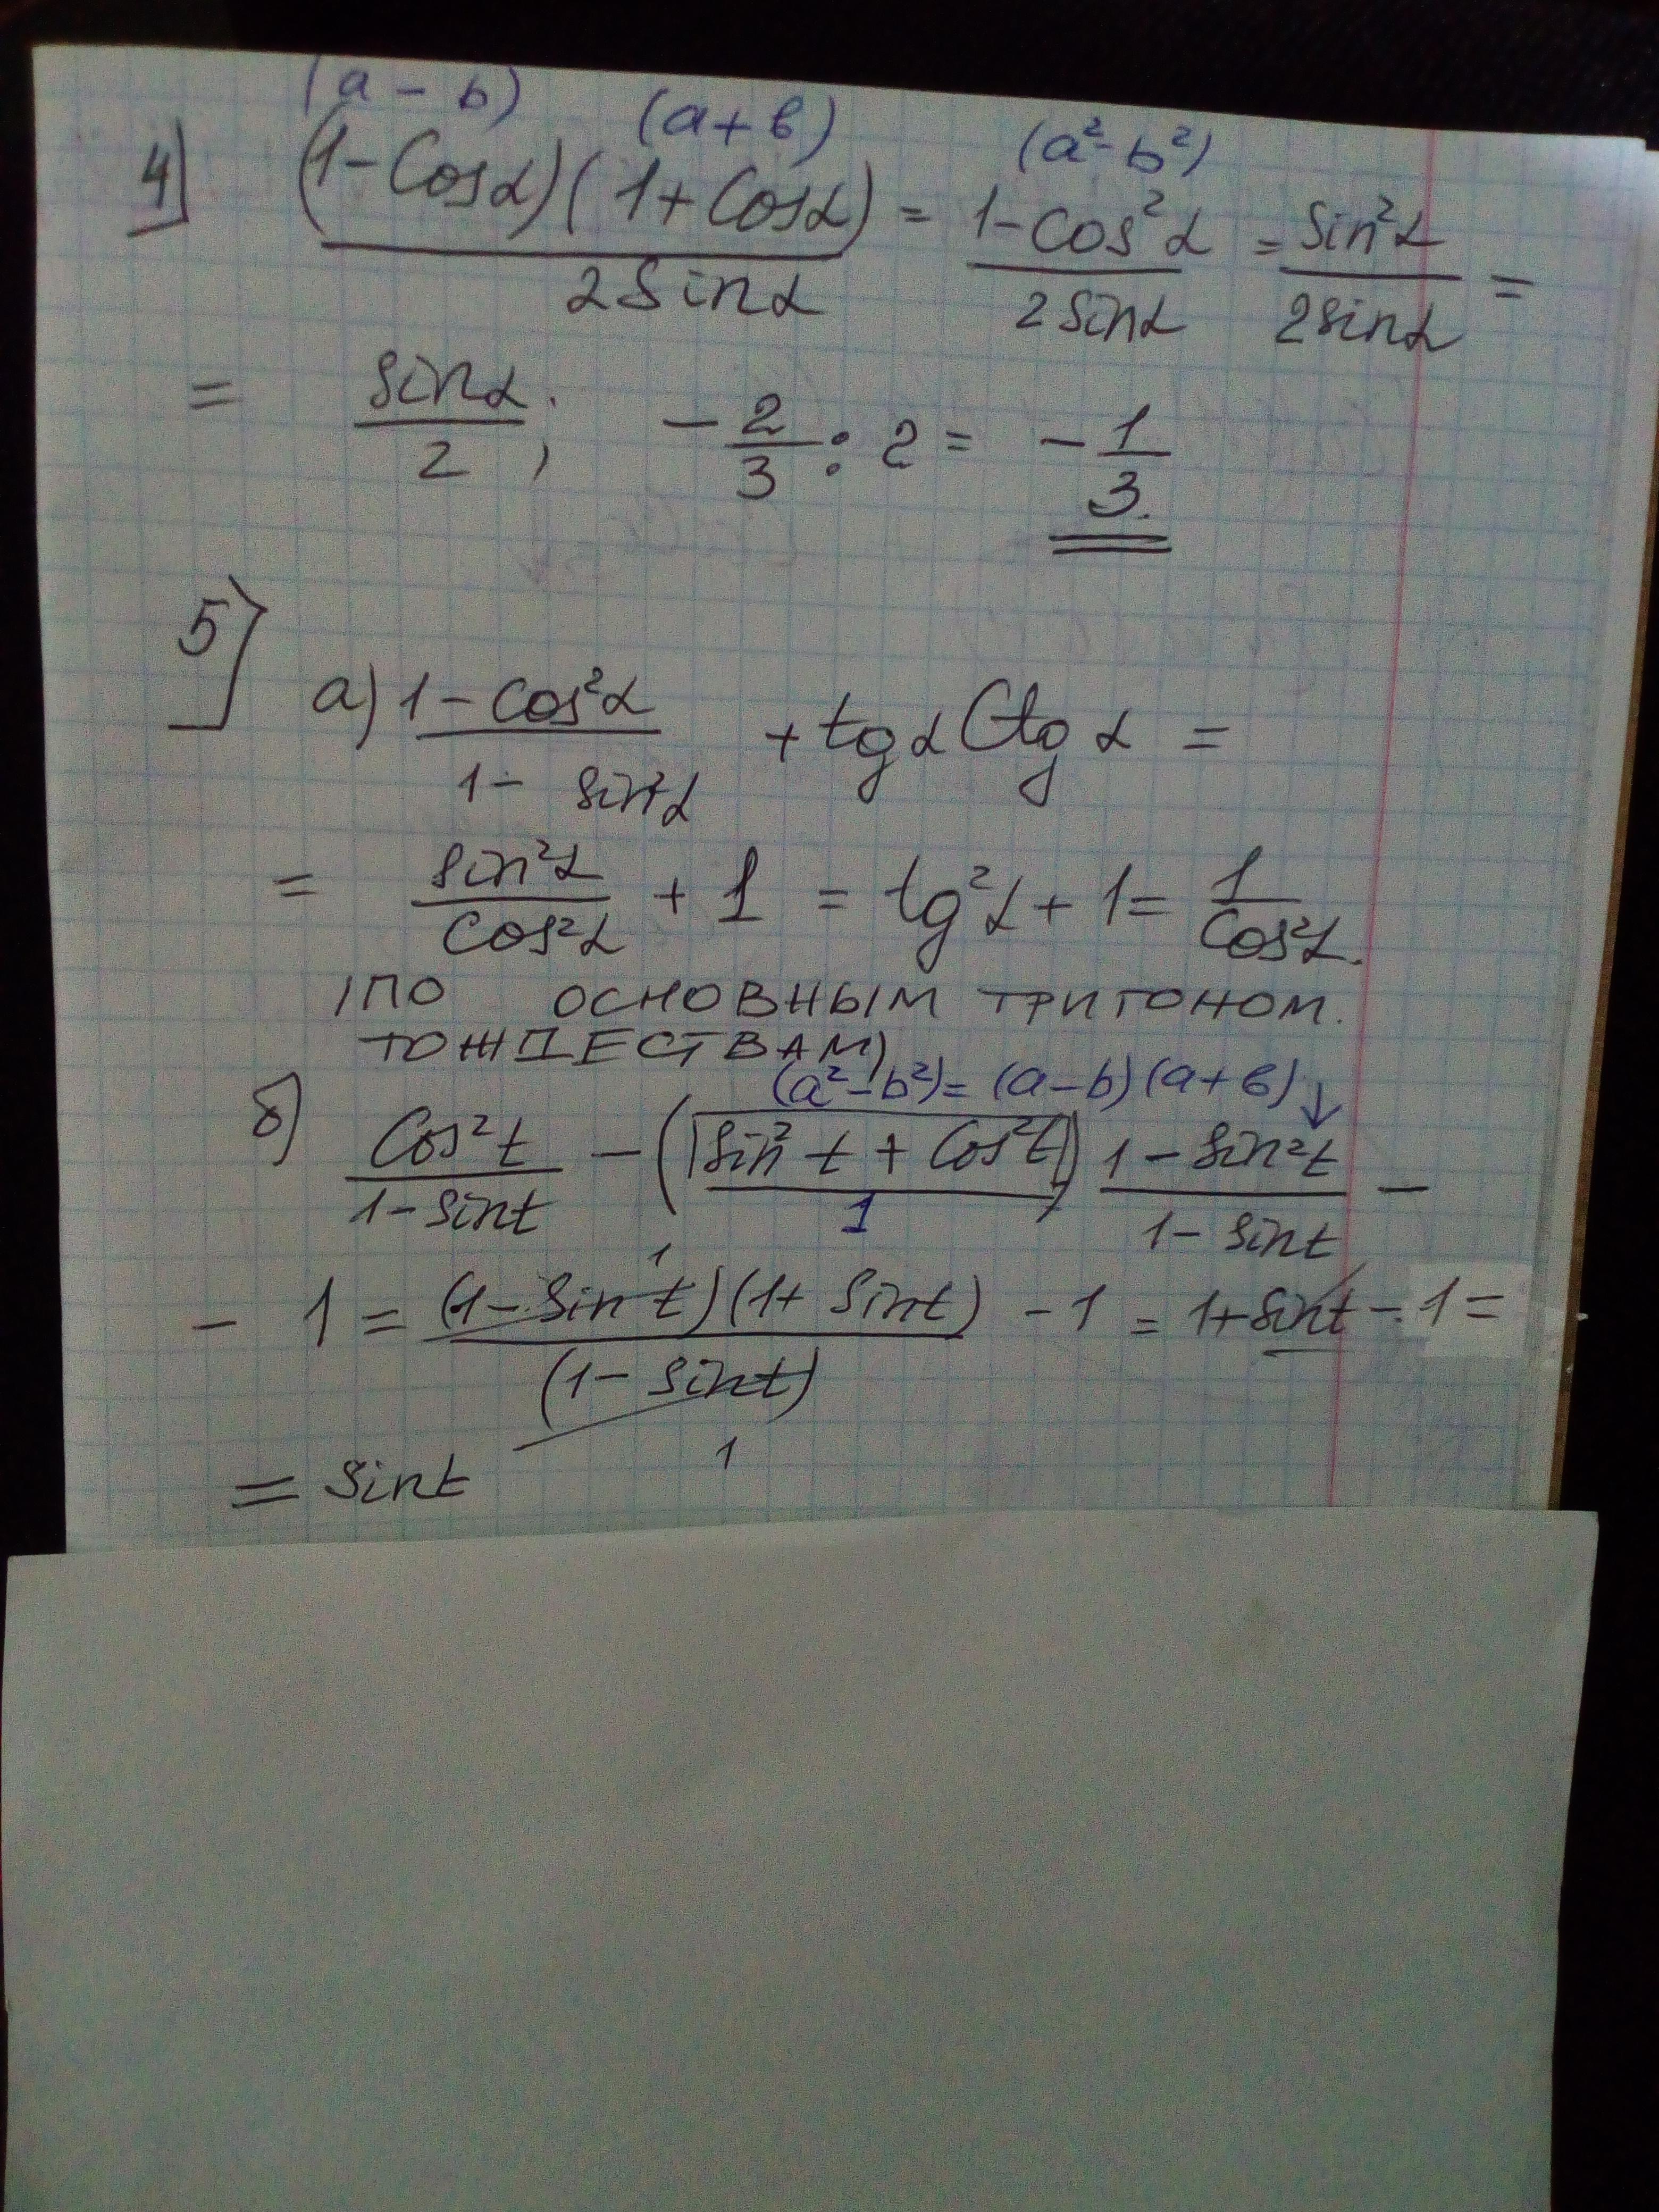 (a - b) (a + в) (a² - b²)
4] (1 - Cosα)(1 + Cosα) / 2Sinα = 1 - Cos²α / 2Sinα = Sin²α / 2sinα =
= sinα / 2 ; - 2/3 : 2 = - 1/3.
5] а) 1 - Cos²α / 1 - sin²α + tgα Ctgα =
= sin²α / Cos²α + 1 = tg²α + 1 = 1 / Cos²α.
(ПО ОСНОВНЫМ ТРИГОНОМ.
ТОЖДЕСТВАМ)
(a² - b²) = (a - b)(a + в) ↓
б) Cos²t / 1 - Sint - (Sin²t + Cos²t) 1 - Sin²t / 1 - Sint -
1
- 1 = (1 - Sint)(1 + Sint) / (1 - Sint) - 1 = 1 + sint - 1 =
1
1
= Sint